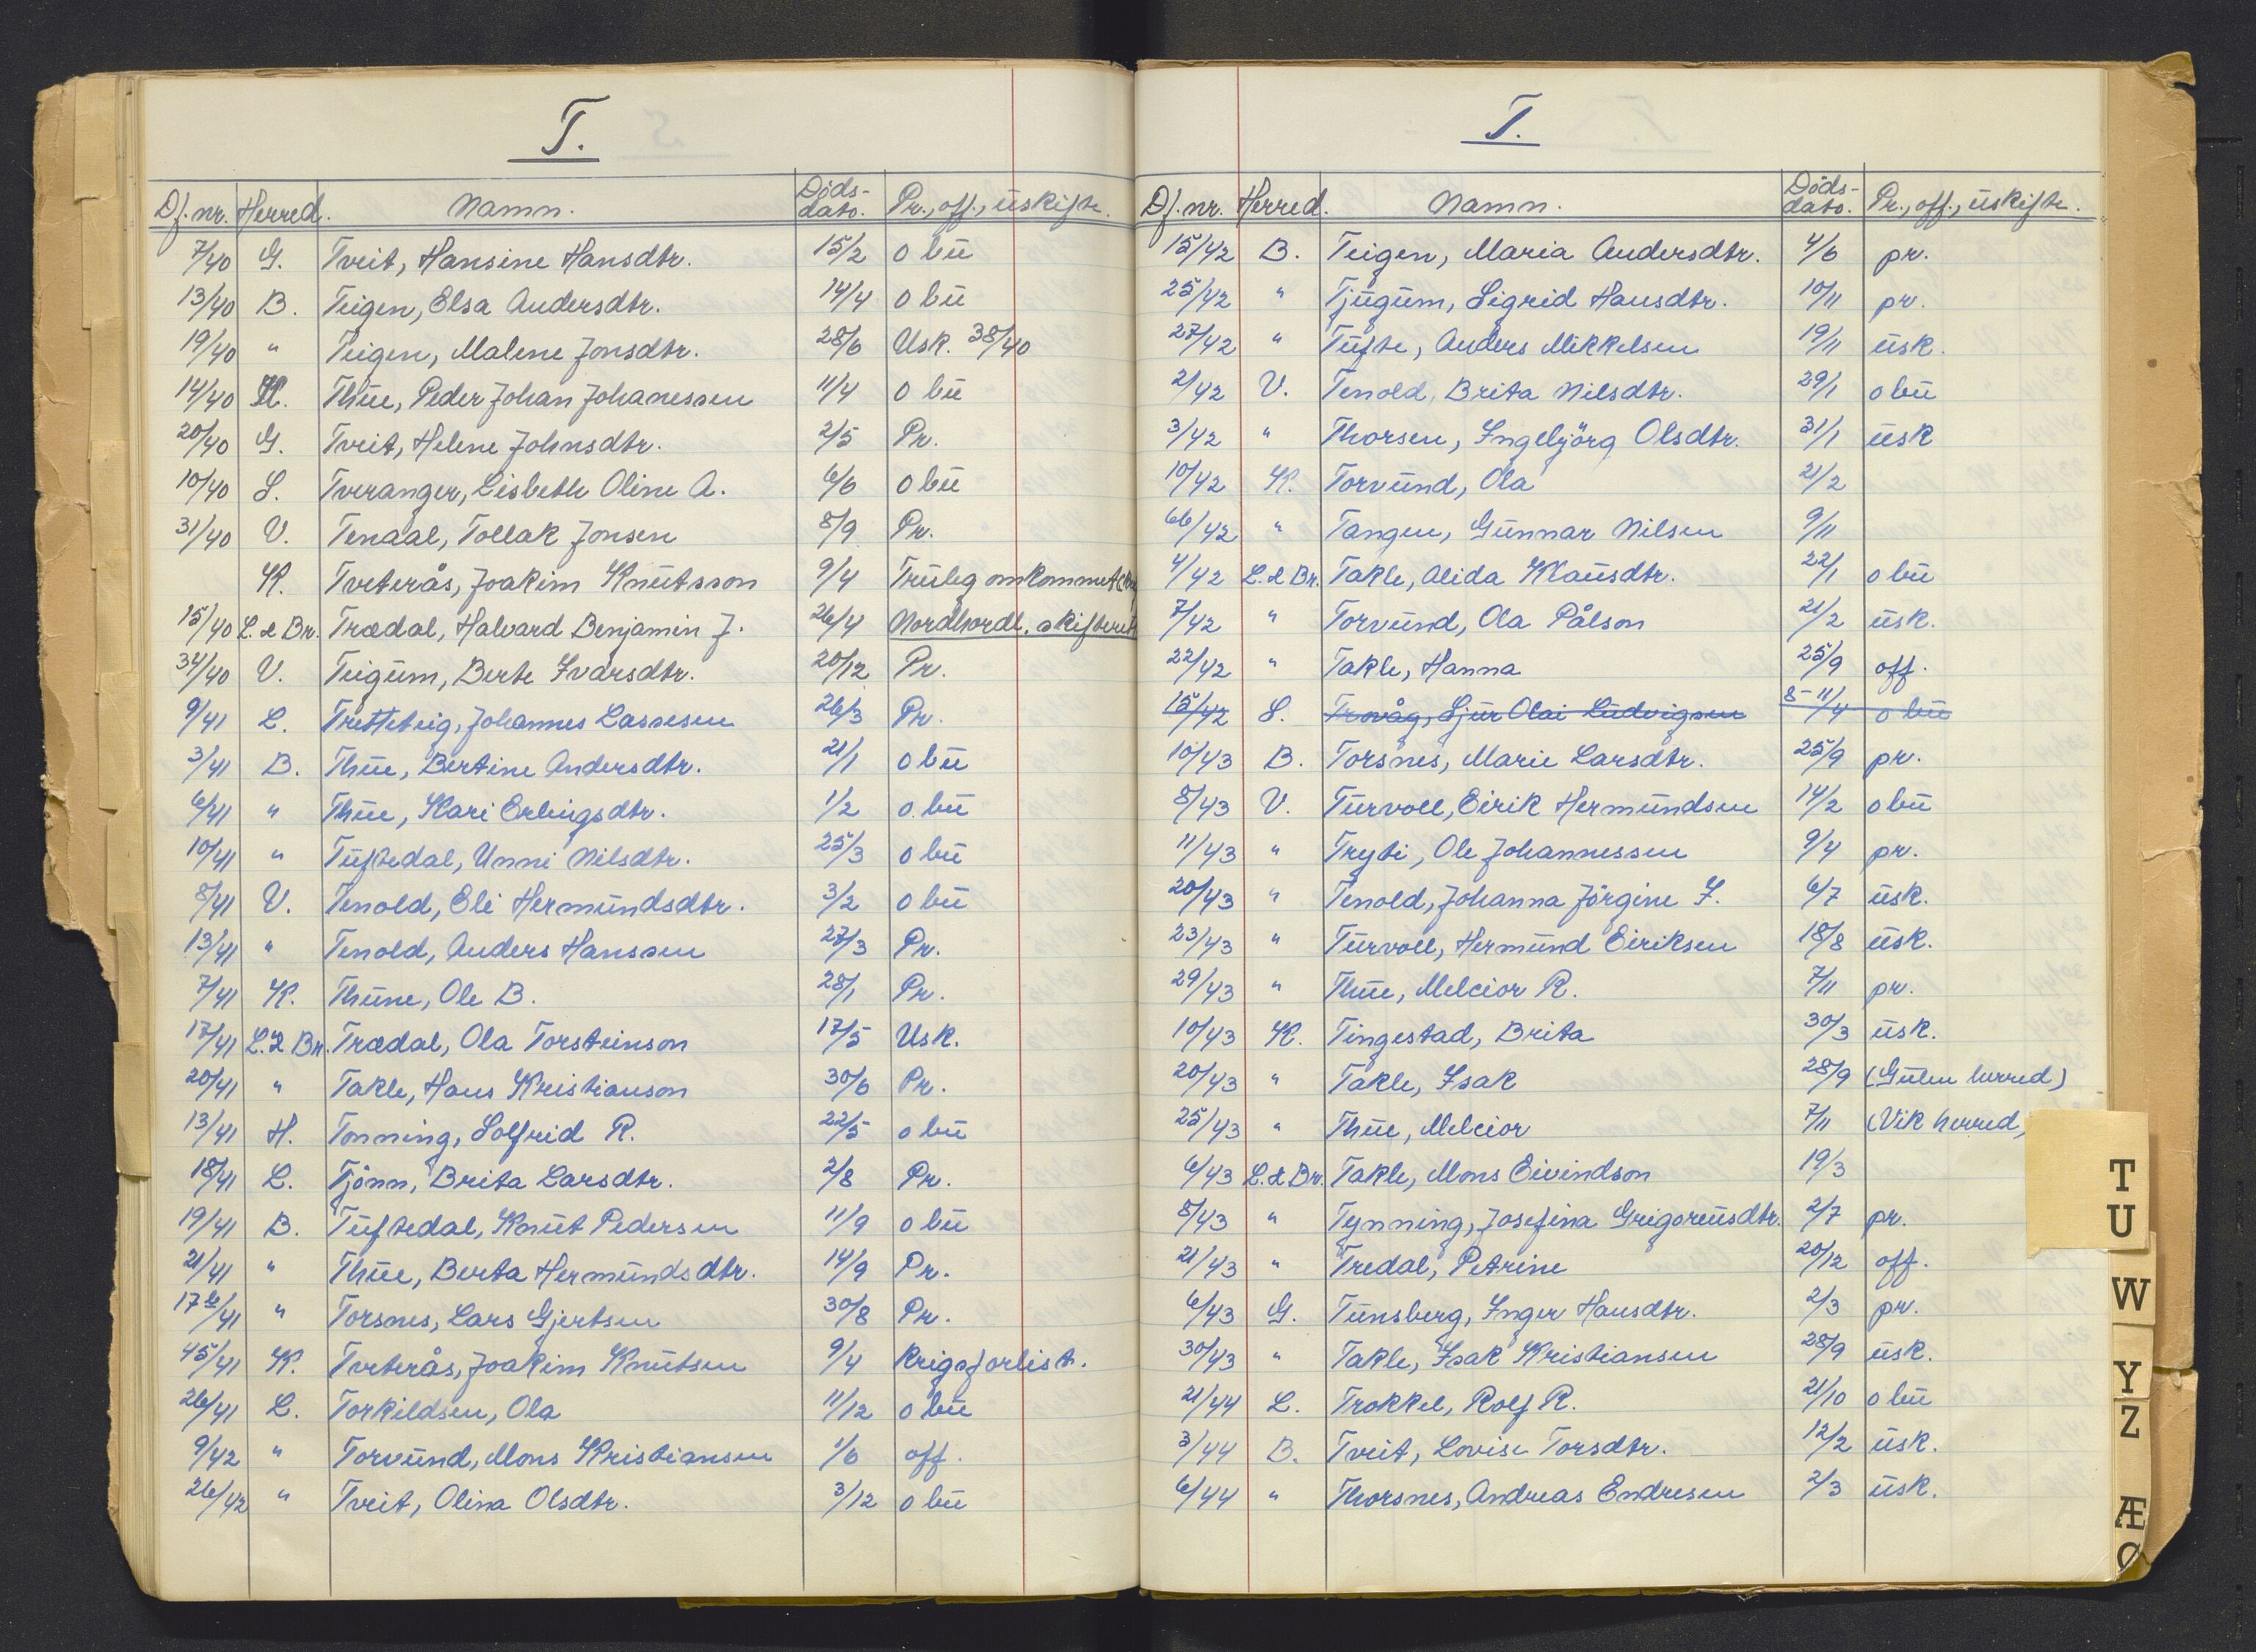 T.
Df. nr. Herred. Namn. Døds-dato. Pr., off., uskifte.
7/40 G. Tveit, Hansine Hansdtr. 15/2 o bu
13/40 B. Teigen, Elsa Andersdtr. 14/4 o bu
19/40 " Teigen, Malene Jonsdtr. 28/6 Usk. 38/40
14/40 H. Thue, Peder Johan Johanessen 11/4 o bu
20/40 G. Tveit, Helene Johnsdtr. 2/5 Pr.
10/40 S. Tveranger, Lisbeth Oline A. 6/6 o bu
31/40 V. Tenaal, Tollak Jonsen 8/9 Pr.
K. Tveterås, Joakim Knutsson 9/4 Truleg omkommet
15/40 L. & Br. Trædal, Halvard Benjamin J. 26/4 Nordhordl. skifterett
34/40 V. Teigum, Berte Ivarsdtr. 20/12 Pr.
9/41 L. Tretteteig, Johannes Lassesen 26/3 Pr.
3/41 B. Thue, Bertine Andersdtr. 21/1 o bu
6/41 " Thue, Kari Erlingsdtr. 1/2 o. bu
10/41 " Tuftedal, Unni Nilsdtr. 25/3 o bu
8/41 V. Tenold, Eli Hermundsdtr. 3/2 o bu
13/41 " Tenold, Anders Hanssen 27/3 Pr.
7/41 K. Thune, Ole B. 28/1 Pr.
17/41 L. & Br. Trædal, Ola Torsteinson 17/5 Usk.
20/41 " Takle, Hans Kristianson 30/6 Pr.
13/41 H. Tonning, Solfrid R. 22/5 o bu
18/41 L. Tjönn, Brita Larsdtr. 2/8 Pr.
19/41 B. Tuftedal, Knut Pedersen 11/9 o bu
21/41 " Thue, Berta Hermundsdtr. 14/9 Pr.
17b/41 " Torsnes, Lars Gjertsen 30/8 Pr.
45/41 K. Tveterås, Joakim Knutsen 9/4 Krigsforlist.
26/41 L. Torkildsen, Ola 11/12 o bu
9/42 " Torvund, Mons Kristiansen 1/6 off.
26/42 " Tveit, Olina Olsdtr. 3/12 o bu
T.
Df. nr. Herred. Namn. Døds-dato. Pr., off., uskifte.
15/42 B. Teigen, Maria Andersdtr. 4/6 pr.
25/42 " Tjugum, Sigrid Hansdtr. 10/11 pr.
27/42 " Tufte, Anders Mikkelsen 19/11 usk.
2/42 V. Tenold, Brita Nilsdtr. 29/1 o bu
3/42 " Thorsen, Ingebjörg Olsdtr. 31/1 usk
10/42 K. Torvund, Ola 21/2
66/42 " Tangen, Gunnar Nilsen 9/11
4/42 L. & Br. Takle, Alida Klausdtr. 22/1 o bu
7/42 " Torvund, Ola Pålson 21/2 usk.
22/42 " Takle, Hanna 25/9 off.
15/42 S. Trovåg, Sjur Olai Ludvigsen 8-11/4 o bu
10/43 B. Torsnes, Marie Larsdtr. 25/9 pr.
8/43 V. Turvoll, Eirik Hermundsen 14/2 o bu
11/43 " Tryti, Ole Johannessen 9/4 pr.
20/43 " Tenold, Johanna Jörgine I. 6/7 usk.
23/43 " Turvoll, Hermund Eiriksen 18/8 usk.
29/43 " Thue, Melcior R. 7/11 pr.
10/43 K. Tingestad, Brita 30/3 usk.
20/43 " Takle, Isak 28/9 (Gulen herred)
25/43 " Thue, Melcior 7/11 (Vik herred,
6/43 L. & Br. Takle, Mons Eivindson 19/3
8/43 " Tynning, Josefina Grigoreusdtr. 2/7 pr.
21/43 " Tredal, Petrine 20/12 off.
6/43 G. Tunsberg, Inger Hansdtr. 2/3 pr.
30/43 " Takle, Isak Kristiansen 28/9 usk.
21/44 L. Trokkel, Rolf R. 21/10 o bu
3/44 B. Tveit, Lovise Torsdtr. 12/2 usk.
6/44 " Thorsnes, Andreas Endresen 2/3 usk.
T
U
W
Y
Z
Æ
Ø